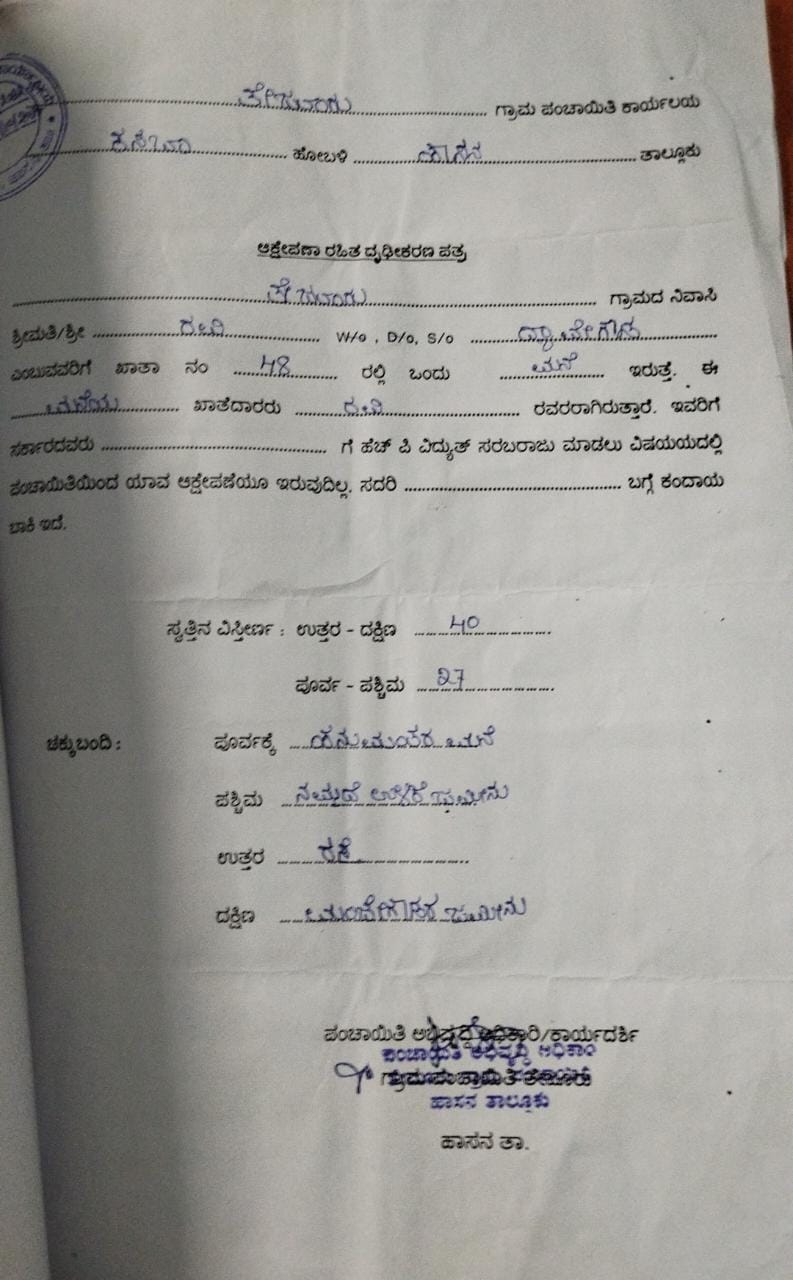 ತೇಜೂರು ಗ್ರಾಮ ಪಂಚಾಯಿತಿ ಕಾರ್ಯಲಯ
ಕಸಬಾ ಹೋಬಳಿ ಹಾಸನ ತಾಲ್ಲೂಕು
ಆಕ್ಷೇಪಣಾ ರಹಿತ ದೃಢೀಕರಣ ಪತ್ರ
ತೇಜೂರು ಗ್ರಾಮದ ನಿವಾಸಿ
ಶ್ರೀಮತಿ/ಶ್ರೀ ರವಿ W/o , D/o, S/o ದ್ಯಾವೇಗೌಡ
ಎಂಬುವವರಿಗೆ ಖಾತಾ ನಂ 48 ರಲ್ಲಿ ಒಂದು ಮನೆ ಇರುತ್ತೆ. ಈ
ಮನೆಯ ಖಾತೆದಾರರು ರವಿ ರವರರಾಗಿರುತ್ತಾರೆ. ಇವರಿಗೆ
ಸರ್ಕಾರದವರು ಗೆ ಹೆಚ್ ಪಿ ವಿದ್ಯುತ್ ಸರಬರಾಜು ಮಾಡಲು ವಿಷಯಯದಲ್ಲಿ
ಪಂಚಾಯಿತಿಯಿಂದ ಯಾವ ಆಕ್ಷೇಪಣೆಯೂ ಇರುವುದಿಲ್ಲ. ಸದರಿ ಬಗ್ಗೆ ಕಂದಾಯ
ಬಾಕಿ ಇದೆ.
ಸ್ವತ್ತಿನ ವಿಸ್ತೀರ್ಣ : ಉತ್ತರ - ದಕ್ಷಿಣ 40
ಪೂರ್ವ - ಪಶ್ಚಿಮ 27
ಚಕ್ಕುಬಂದಿ : ಪೂರ್ವಕ್ಕೆ ಹನುಮಂತರ ಮನೆ
ಪಶ್ಚಿಮ ಜಮೀನು
ಉತ್ತರ ರಸ್ತೆ
ದಕ್ಷಿಣ ಜಮೀನು
ಪಂಚಾಯಿತಿ ಅಭಿವೃದ್ಧಿ ಅಧಿಕಾರಿ/ಕಾರ್ಯದರ್ಶಿ
ಪಂಚಾಯಿತಿ ಅಭಿವೃದ್ಧಿ ಅಧಿಕಾರಿ
ಹಾಸನ ತಾಲ್ಲೂಕು
ಹಾಸನ ತಾ.